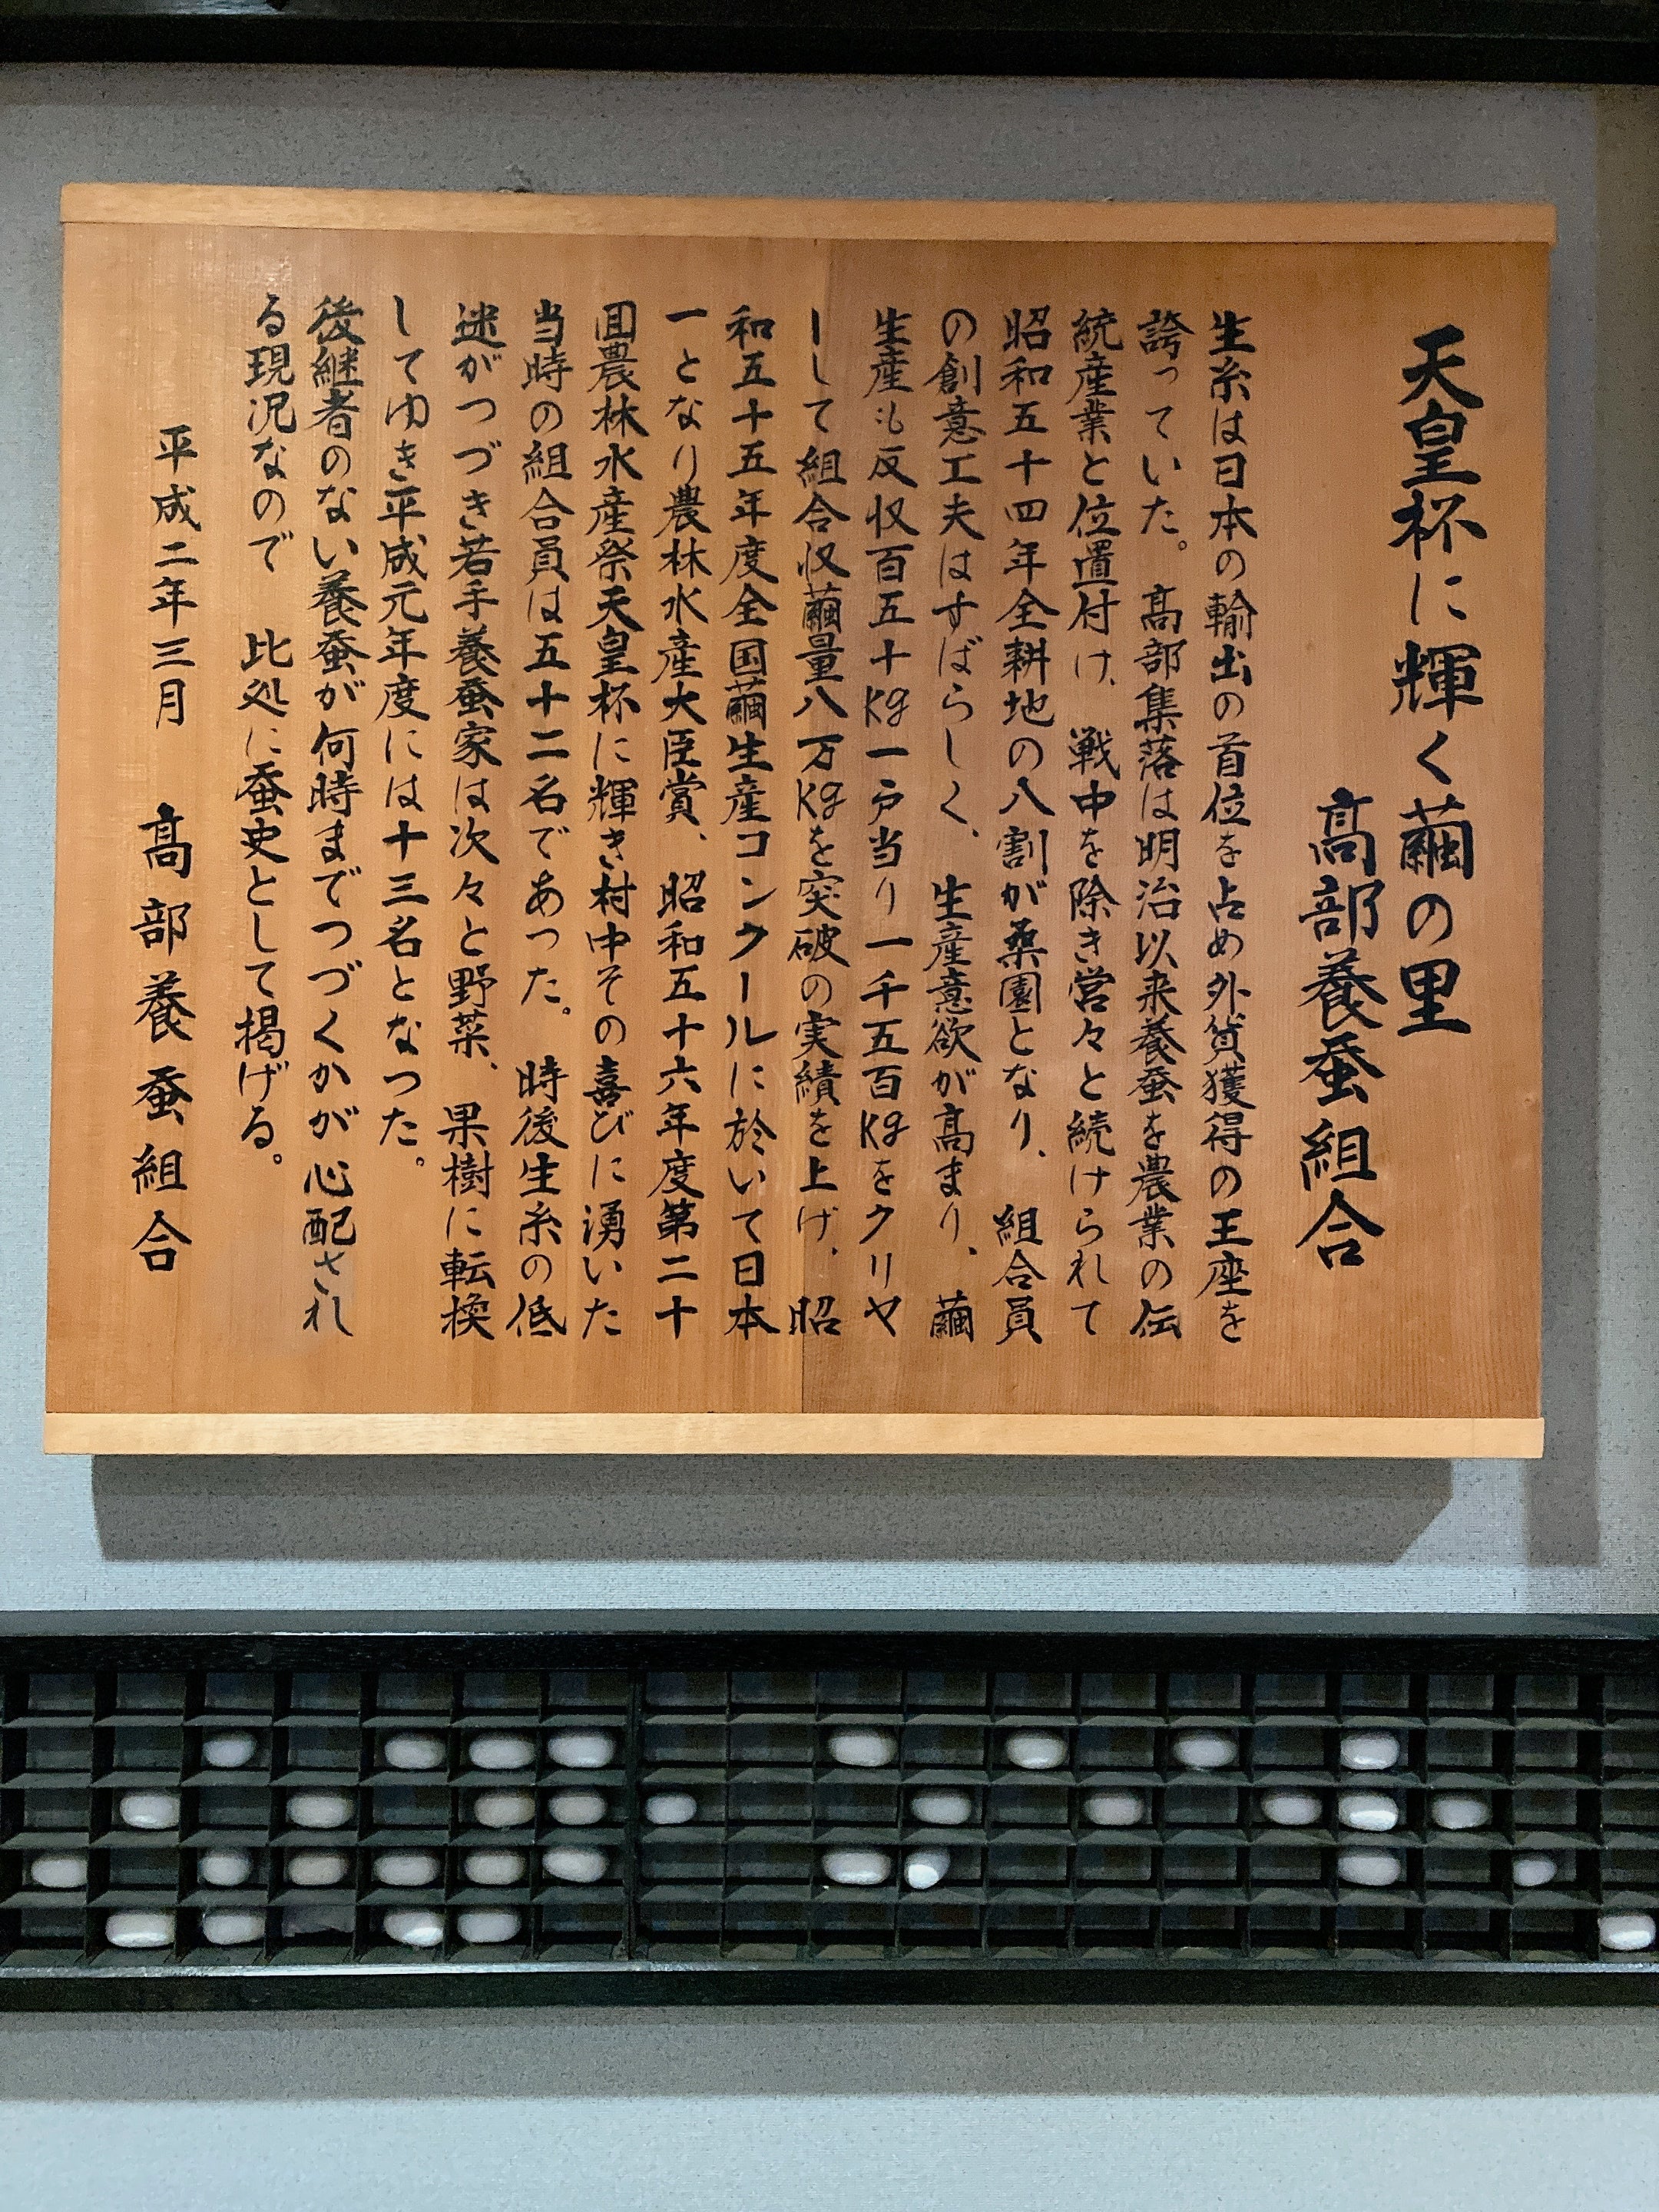 天皇杯に輝く繭の里
髙部養蚕組合
生糸は日本の輸出の首位を占め外貨獲得の王座を
誇っていた。髙部集落は明治以来養蚕を農業の伝
統産業と位置付け、戦中を除き営々と続けられて
昭和五十四年全耕地の八割が桑園となり、組合員
の創意工夫はすばらしく、生産意欲が髙まり、繭
生産も反収百五十kg一戸当り一千五百kgをクリヤ
ーして組合収繭量八万kgを突破の実績を上げ、昭
和五十五年度全国繭生産コンクールに於いて日本
一となり農林水産大臣賞、昭和五十六年度第二十
回農林水産祭天皇杯に輝き村中その喜びに湧いた
当時の組合員は五十二名であった。時後生糸の低
迷がつづき若手養蚕家は次々と野菜、果樹に転換
してゆき平成元年度には十三名となった。
後継者のない養蚕が何時までつづくかが心配され
る現況なので 比処に蚕史として掲げる。
平成二年三月 髙部養蚕組合